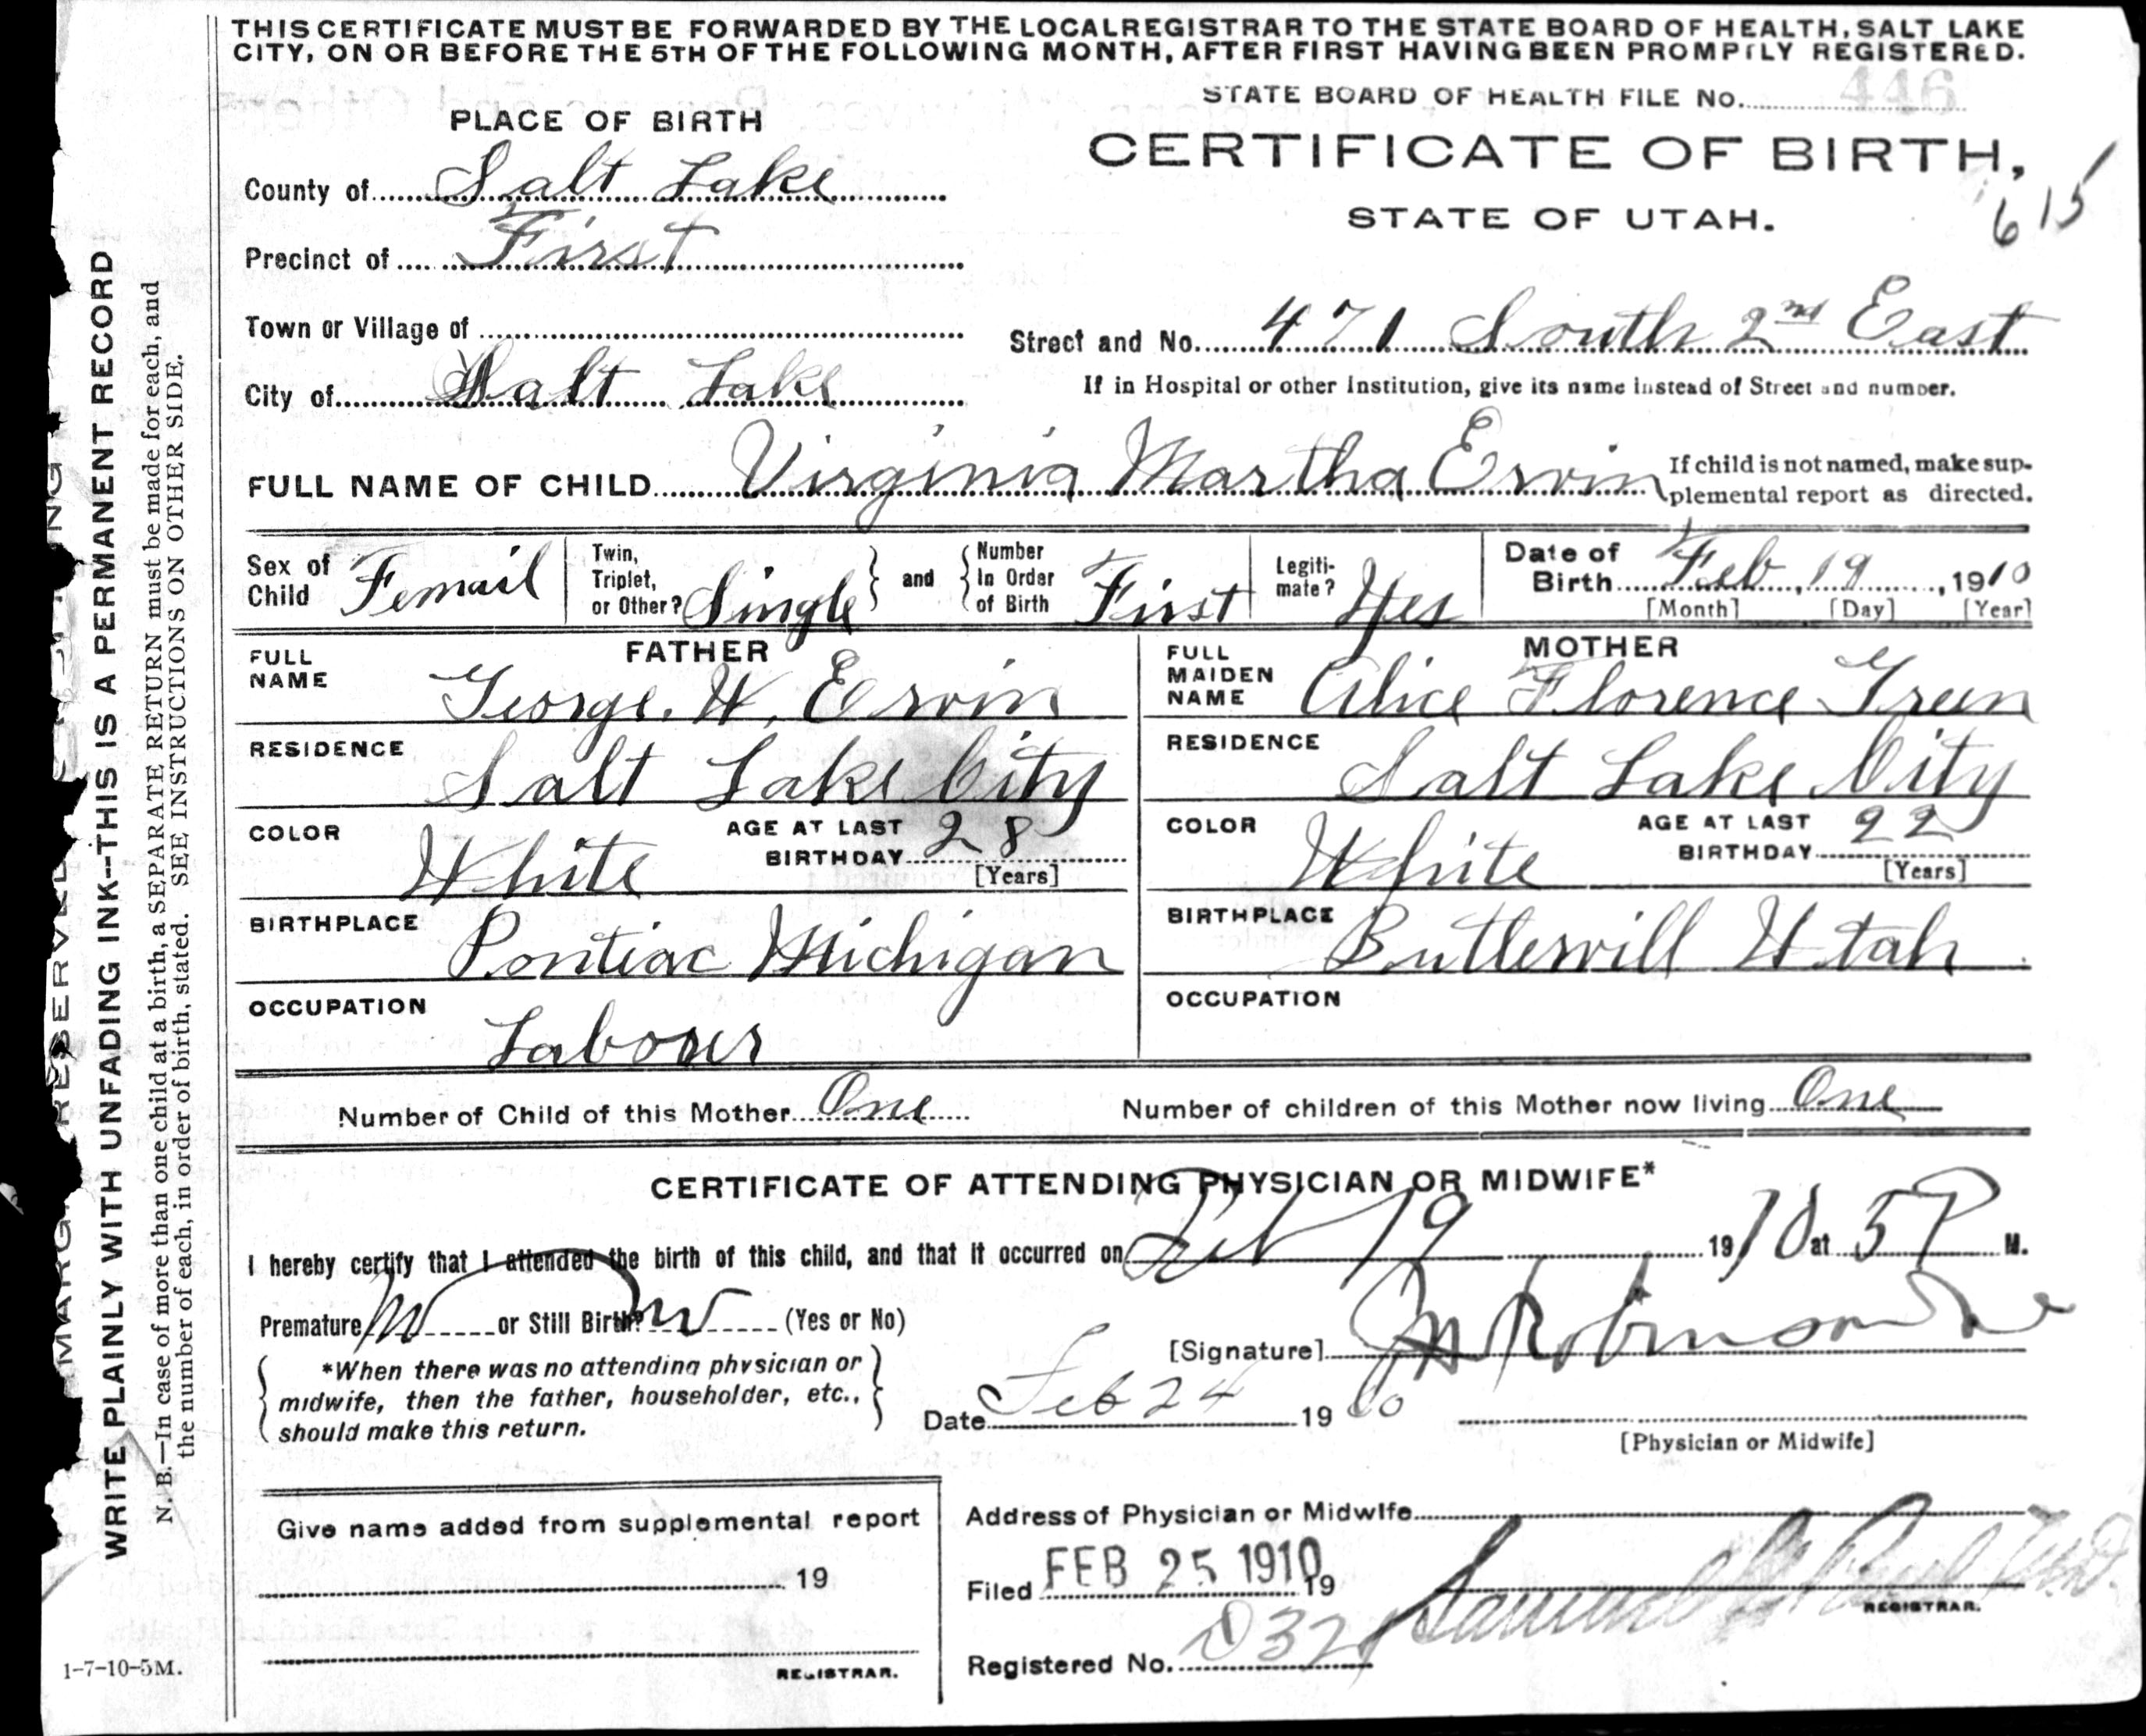 THIS CERTIFICATE MUST BE FORWARDED BY THE LOCAL REGISTRAR TO THE STATE BOARD OF HEALTH, SALT LAKE
CITY, ON OR BEFORE THE 5TH OF THE FOLLOWING MONTH, AFTER FIRST HAVING BEEN PROMPTLY REGISTERED.
STATE BOARD OF HEALTH FILE No. 446
PLACE OF BIRTH
CERTIFICATE OF BIRTH,
STATE OF UTAH.
615
County of Salt Lake
Precinct of First
Town or Village of
Street and No. 471 South 2nd East
City of Salt Lake
If in Hospital or other Institution, give its name instead of Street and number.
FULL NAME OF CHILD Virginia Martha Ervin
If child is not named, make sup-
plemental report as directed.
Sex of Child Femail
Twin, Triplet, or Other? Single
and
Number In Order of Birth First
Legiti-mate? Yes
Date of Birth Feb, 19, 1910
[Month] [Day] [Year]
FATHER
FULL NAME George. W. Ervin
RESIDENCE Salt Lake City
COLOR White
AGE AT LAST BIRTHDAY 28
[Years]
BIRTHPLACE Pontiac Michigan
OCCUPATION Laborer
MOTHER
FULL MAIDEN NAME Alice Florence Green
RESIDENCE Salt Lake City
COLOR White
AGE AT LAST BIRTHDAY 22
[Years]
BIRTHPLACE Butlervill Utah
OCCUPATION
Number of Child of this Mother One
Number of children of this Mother now living One
CERTIFICATE OF ATTENDING PHYSICIAN OR MIDWIFE*
I hereby certify that I attended the birth of this child, and that it occurred on Feb 19 1910 at 5 P M.
Premature or Still Birth? (Yes or No)
[Signature] Robinson
*When there was no attending physician or
midwife, then the father, householder, etc.,
should make this return.
Date Feb 24 1910
[Physician or Midwife]
Give name added from supplemental report
19
REGISTRAR.
Address of Physician or Midwife
Filed FEB 25 1910 19
Samuel G. Paul M.D.
REGISTRAR.
Registered No. 32
1-7-10-5M.
MARGIN RESERVED
WRITE PLAINLY WITH UNFADING INK--THIS IS A PERMANENT RECORD
N. B.—In case of more than one child at a birth, a SEPARATE RETURN must be made for each, and
the number of each, in order of birth, stated. SEE INSTRUCTIONS ON OTHER SIDE.